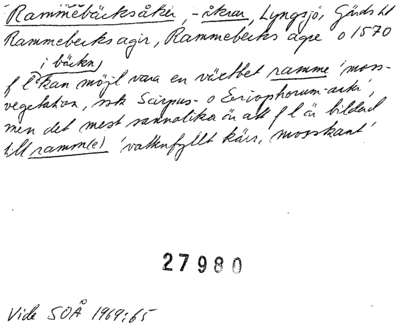 Rammebäcksåker, -åkran, Lyngsjö, Gärds hd
Rammebecks agir, Rammebecks agre o 1570
i bäckn)
f l kan möjl vara en växtbet ramme 'moss-
vegetation, nsk Scirpus- o Eriophorum-arter',
men det mest sannolika är att f l är bildad
till ramm(e) 'vattenfyllt kärr, mosskant'
27980
Vide SOÅ 1969:65